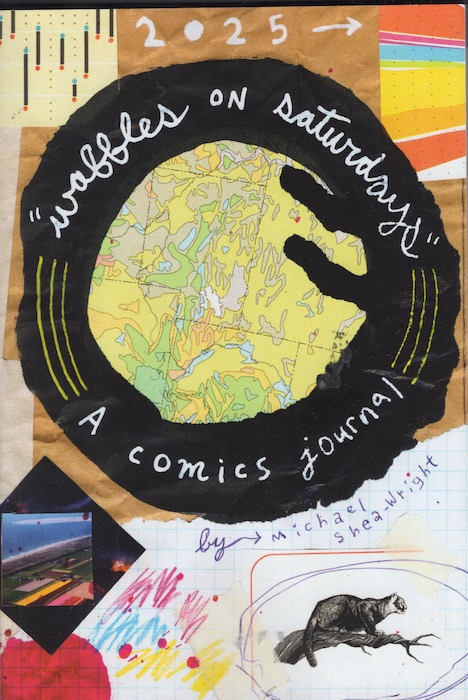 2025 →
"waffles on saturdays"
A comics journal
by → michael
shea-wright